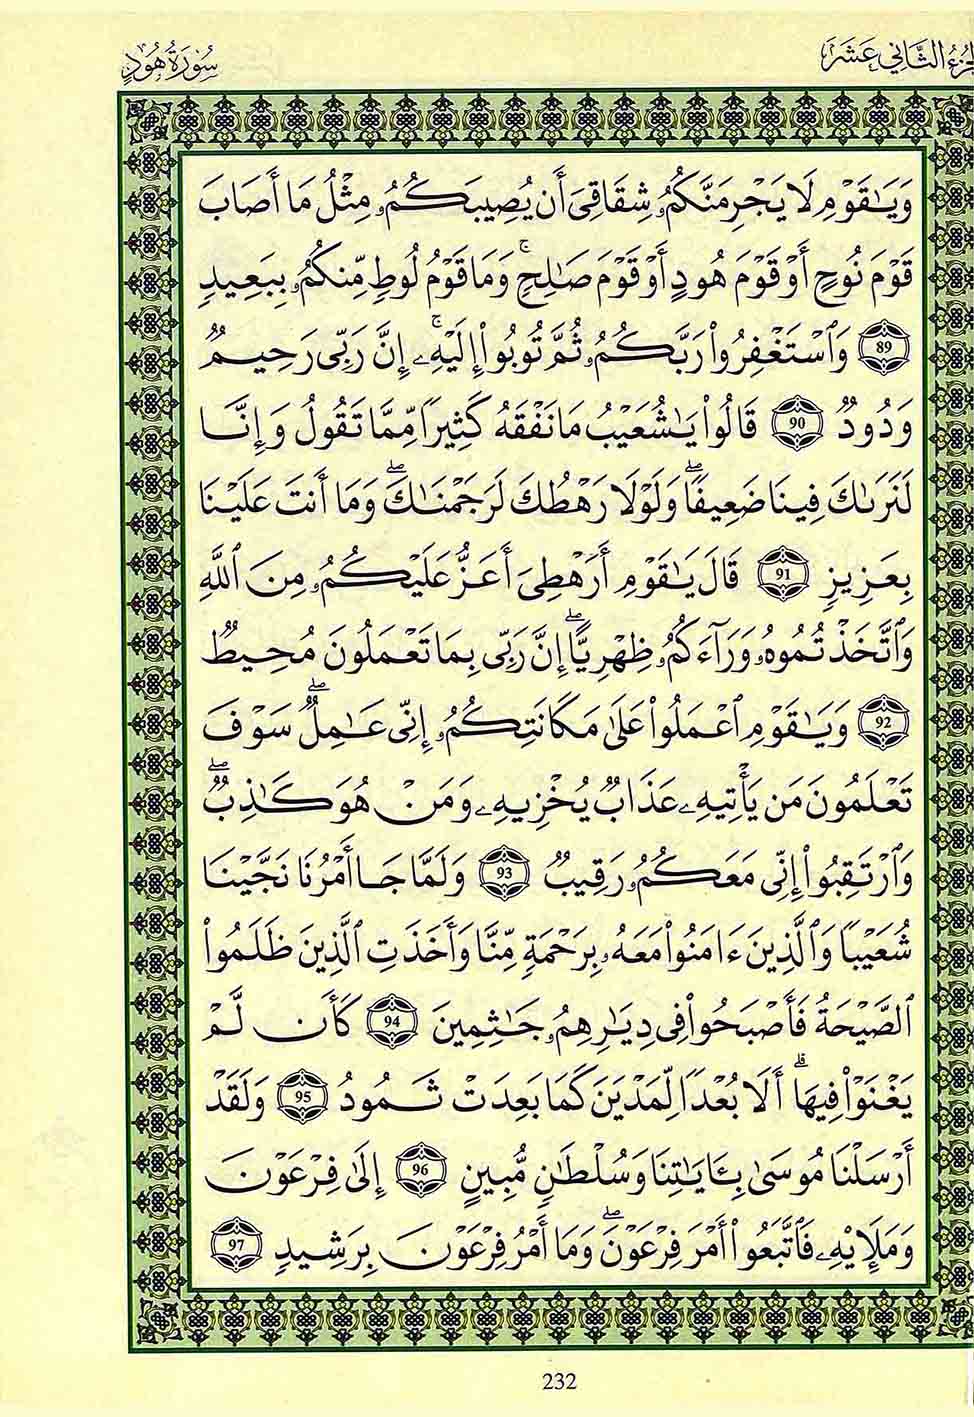 الجزء الثاني عشر
سُورَةُ هُودٍ
وَيَٰقَوْمِ لَا يَجْرِمَنَّكُمُۥ شِقَاقِىَ أَن يُصِيبَكُمُۥ مِثْلُ مَا أَصَابَ
قَوْمَ نُوحٍ أَوْ قَوْمَ هُودٍ أَوْ قَوْمَ صَٰلِحٍ ۚ وَمَا قَوْمُ لُوطٍ مِّنكُمُۥ بِبَعِيدٍ
89 وَٱسْتَغْفِرُوا۟ رَبَّكُمُۥ ثُمَّ تُوبُوا۟ إِلَيْهِۦ ۚ إِنَّ رَبِّى رَحِيمٌ
وَدُودٌ 90 قَالُوا۟ يَٰشُعَيْبُ مَا نَفْقَهُ كَثِيرًا مِّمَّا تَقُولُ وَإِنَّا
لَنَرَىٰكَ فِينَا ضَعِيفًا ۖ وَلَوْلَا رَهْطُكَ لَرَجَمْنَٰكَ ۖ وَمَا أَنتَ عَلَيْنَا
بِعَزِيزٍ 91 قَالَ يَٰقَوْمِ أَرَهْطِىَ أَعَزُّ عَلَيْكُمُۥ مِنَ ٱللَّهِ
وَٱتَّخَذْتُمُوهُۥ وَرَآءَكُمُۥ ظِهْرِيًّا ۖ إِنَّ رَبِّى بِمَا تَعْمَلُونَ مُحِيطٌ
92 وَيَٰقَوْمِ ٱعْمَلُوا۟ عَلَىٰ مَكَانَتِكُمُۥ إِنِّى عَٰمِلٌ ۖ سَوْفَ
تَعْلَمُونَ مَن يَأْتِيهِۦ عَذَابٌ يُخْزِيهِۦ وَمَنْ هُوَ كَٰذِبٌ ۖ
وَٱرْتَقِبُوا۟ إِنِّى مَعَكُمُۥ رَقِيبٌ 93 وَلَمَّا جَا أَمْرُنَا نَجَّيْنَا
شُعَيْبًا وَٱلَّذِينَ ءَامَنُوا۟ مَعَهُۥ بِرَحْمَةٍ مِّنَّا وَأَخَذَتِ ٱلَّذِينَ ظَلَمُوا۟
ٱلصَّيْحَةُ فَأَصْبَحُوا۟ فِى دِيَٰرِهِمُۥ جَٰثِمِينَ 94 كَأَن لَّمْ
يَغْنَوْا۟ فِيهَا ۗ أَلَا بُعْدًا لِّمَدْيَنَ كَمَا بَعِدَتْ ثَمُودُ 95 وَلَقَدْ
أَرْسَلْنَا مُوسَىٰ بِـَٔايَٰتِنَا وَسُلْطَٰنٍ مُّبِينٍ 96 إِلَىٰ فِرْعَوْنَ
وَمَلَإِي۟هِۦ فَٱتَّبَعُوا۟ أَمْرَ فِرْعَوْنَ ۖ وَمَا أَمْرُ فِرْعَوْنَ بِرَشِيدٍ 97
232